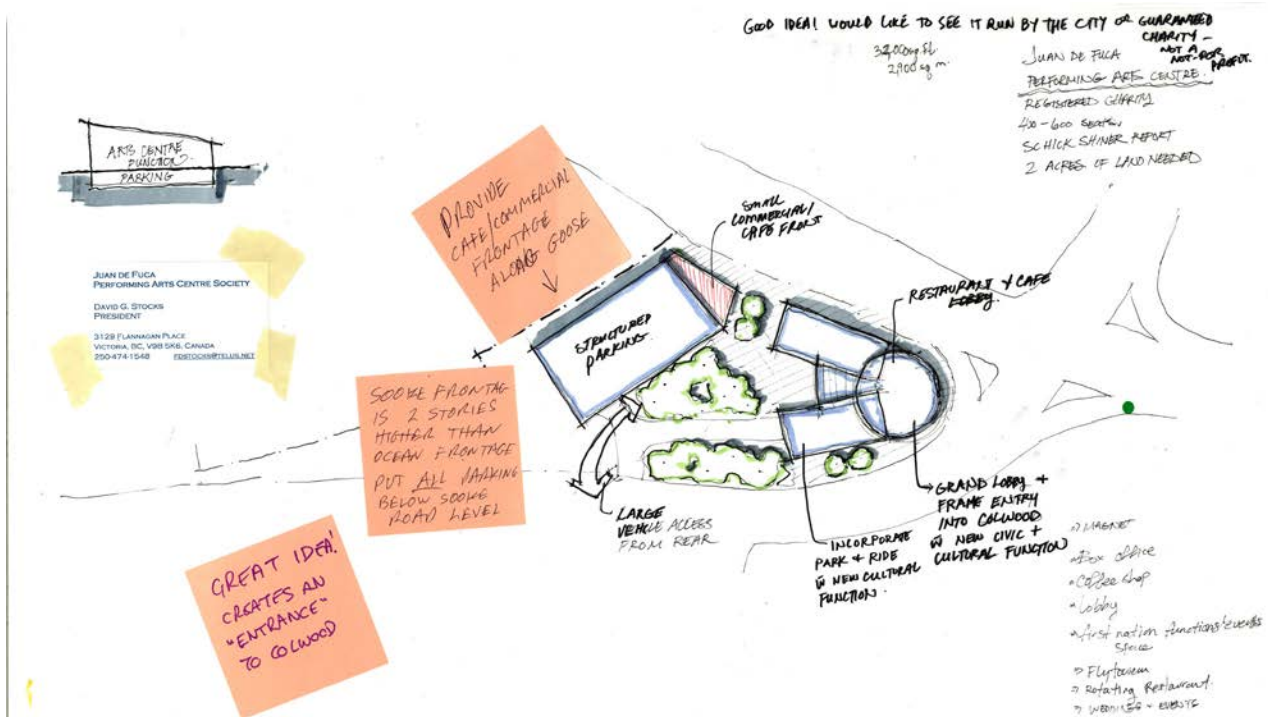 GOOD IDEA! WOULD LIKE TO SEE IT RUN BY THE CITY OR GUARANTEED
CHARITY -
NOT A
NOT-FOR
PROFIT.
32,000 sq.ft.
2,900 sq m.
JUAN DE FUCA
PERFORMING ARTS CENTRE.
REGISTERED CHARITY
400-600 SEATS.
SCHICK SHINER REPORT
2 ACRES OF LAND NEEDED
ARTS CENTRE
FUNCTION.
PARKING
JUAN DE FUCA
PERFORMING ARTS CENTRE SOCIETY
DAVID G. STOCKS
PRESIDENT
3129 FLANNAGAN PLACE
VICTORIA, BC, V9B 5K6, CANADA
250-474-1548 FDSTOCKS@TELUS.NET
PROVIDE
CAFE/COMMERCIAL
FRONTAGE
ALONG GOOSE
SMALL
COMMERCIAL/
CAFE FRONT
STRUCTURED
PARKING
RESTAURANT & CAFE
LOBBY.
SOOKE FRONTAG
IS 2 STORIES
HIGHER THAN
OCEAN FRONTAGE
PUT ALL PARKING
BELOW SOOKE
ROAD LEVEL
GREAT IDEA!
CREATES AN
"ENTRANCE"
TO COLWOOD
LARGE
VEHICLE ACCESS
FROM REAR
INCORPORATE
PARK & RIDE
W NEW CULTURAL
FUNCTION.
GRAND LOBBY +
FRAME ENTRY
INTO COLWOOD
W NEW CIVIC +
CULTURAL FUNCTION
MAGNET
Box office
Coffee shop
Lobby
first nation functions/events
space
Flytower
Rotating Restaurant.
WEDDINGS - EVENTS